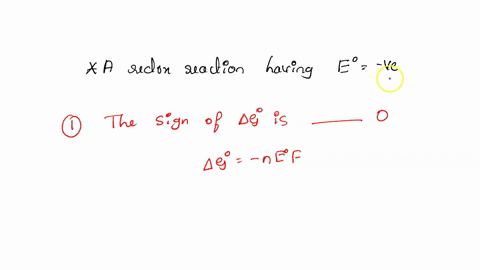 * A redox reaction having E° = -ve
① The sign of ΔG° is ____ 0
ΔG° = -nE°F